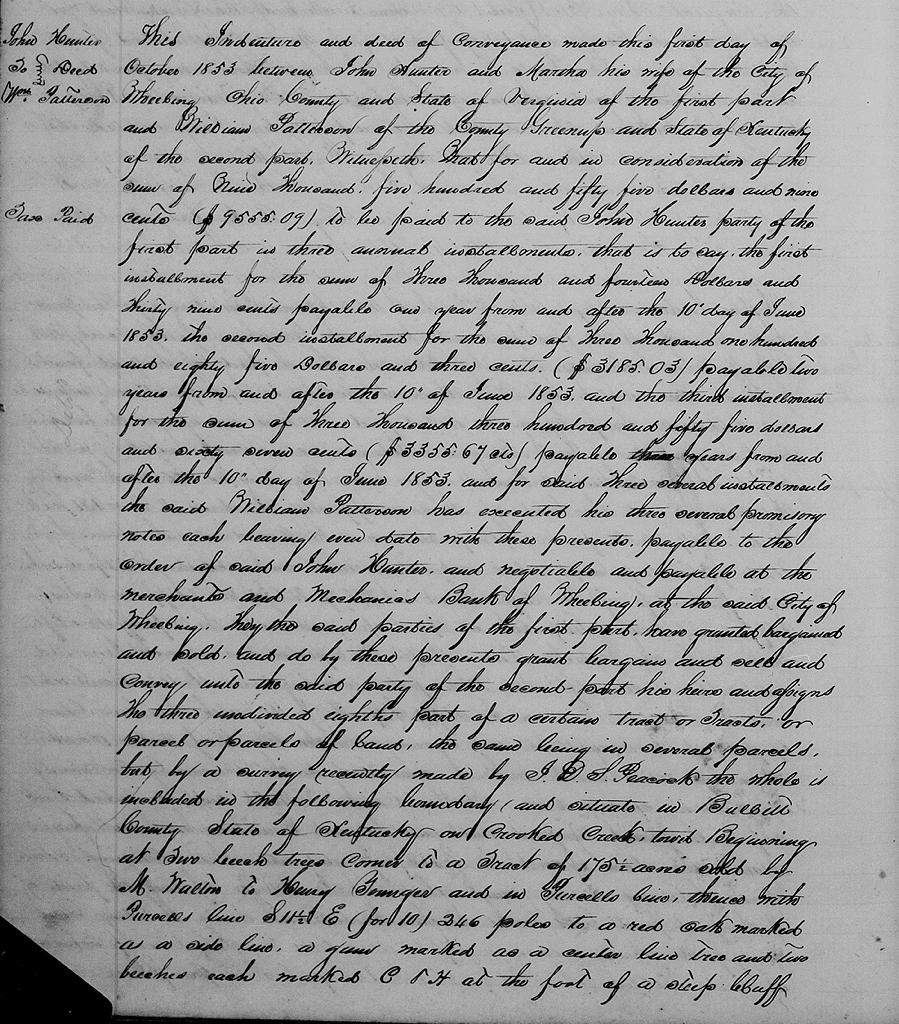 John Hunter
To Deed
Wm. Patterson
Tax Paid
This Indenture and deed of Conveyance made this first day of
October 1853 between John Hunter and Martha his wife of the City of
Wheeling Ohio County and State of Virginia of the first part
and William Patterson of the County Greenup and State of Kentucky
of the second part. Witnesseth. That for and in consideration of the
sum of Nine Thousand, five hundred and fifty five dollars and nine
cents ($9555.09) to be paid to the said John Hunter party of the
first part in three annual installments, that is to say, the first
installment for the sum of Three Thousand and fourteen Dollars and
thirty nine cents payable one year from and after the 10" day of June
1853, the second installment for the sum of Three Thousand one hundred
and eighty five Dollars and three cents. ($3185.03) payable two
years from and after the 10" of June 1853, and the third installment
for the sum of Three Thousand three hundred and fifty five dollars
and sixty seven cents ($3355.67 cts) payable three years from and
after the 10" day of June 1853, and for said Three several installments
the said William Patterson has executed his three several promisory
notes each bearing even date with these presents, payable to the
order of said John Hunter, and negotiable and payable at the
merchants and Mechanics Bank of Wheeling, at the said City of
Wheeling. They the said parties of the first part, have granted bargained
and sold, and do by these presents grant bargain and sell and
Convey unto the said party of the second part his heirs and assigns
the three undivided eighths part of a certain tract or Tracts, or
parcel or parcels of Land, the same being in several parcels,
but by a survey recently made by J. D. S. Peacock the whole is
included in the following boundary (and situate in Bullitt
County State of Kentucky on Crooked Creek, towit Beginning
at Two beech trees Corner to a Tract of 175½ acres sold by
M. Walton to Henry Younger and in Purcells line, thence with
Purcells line S 11½ E (for 10) 246 poles to a red oak marked
as a side line, a gum marked as a center line tree and two
beeches each marked C & H at the foot of a steep bluff